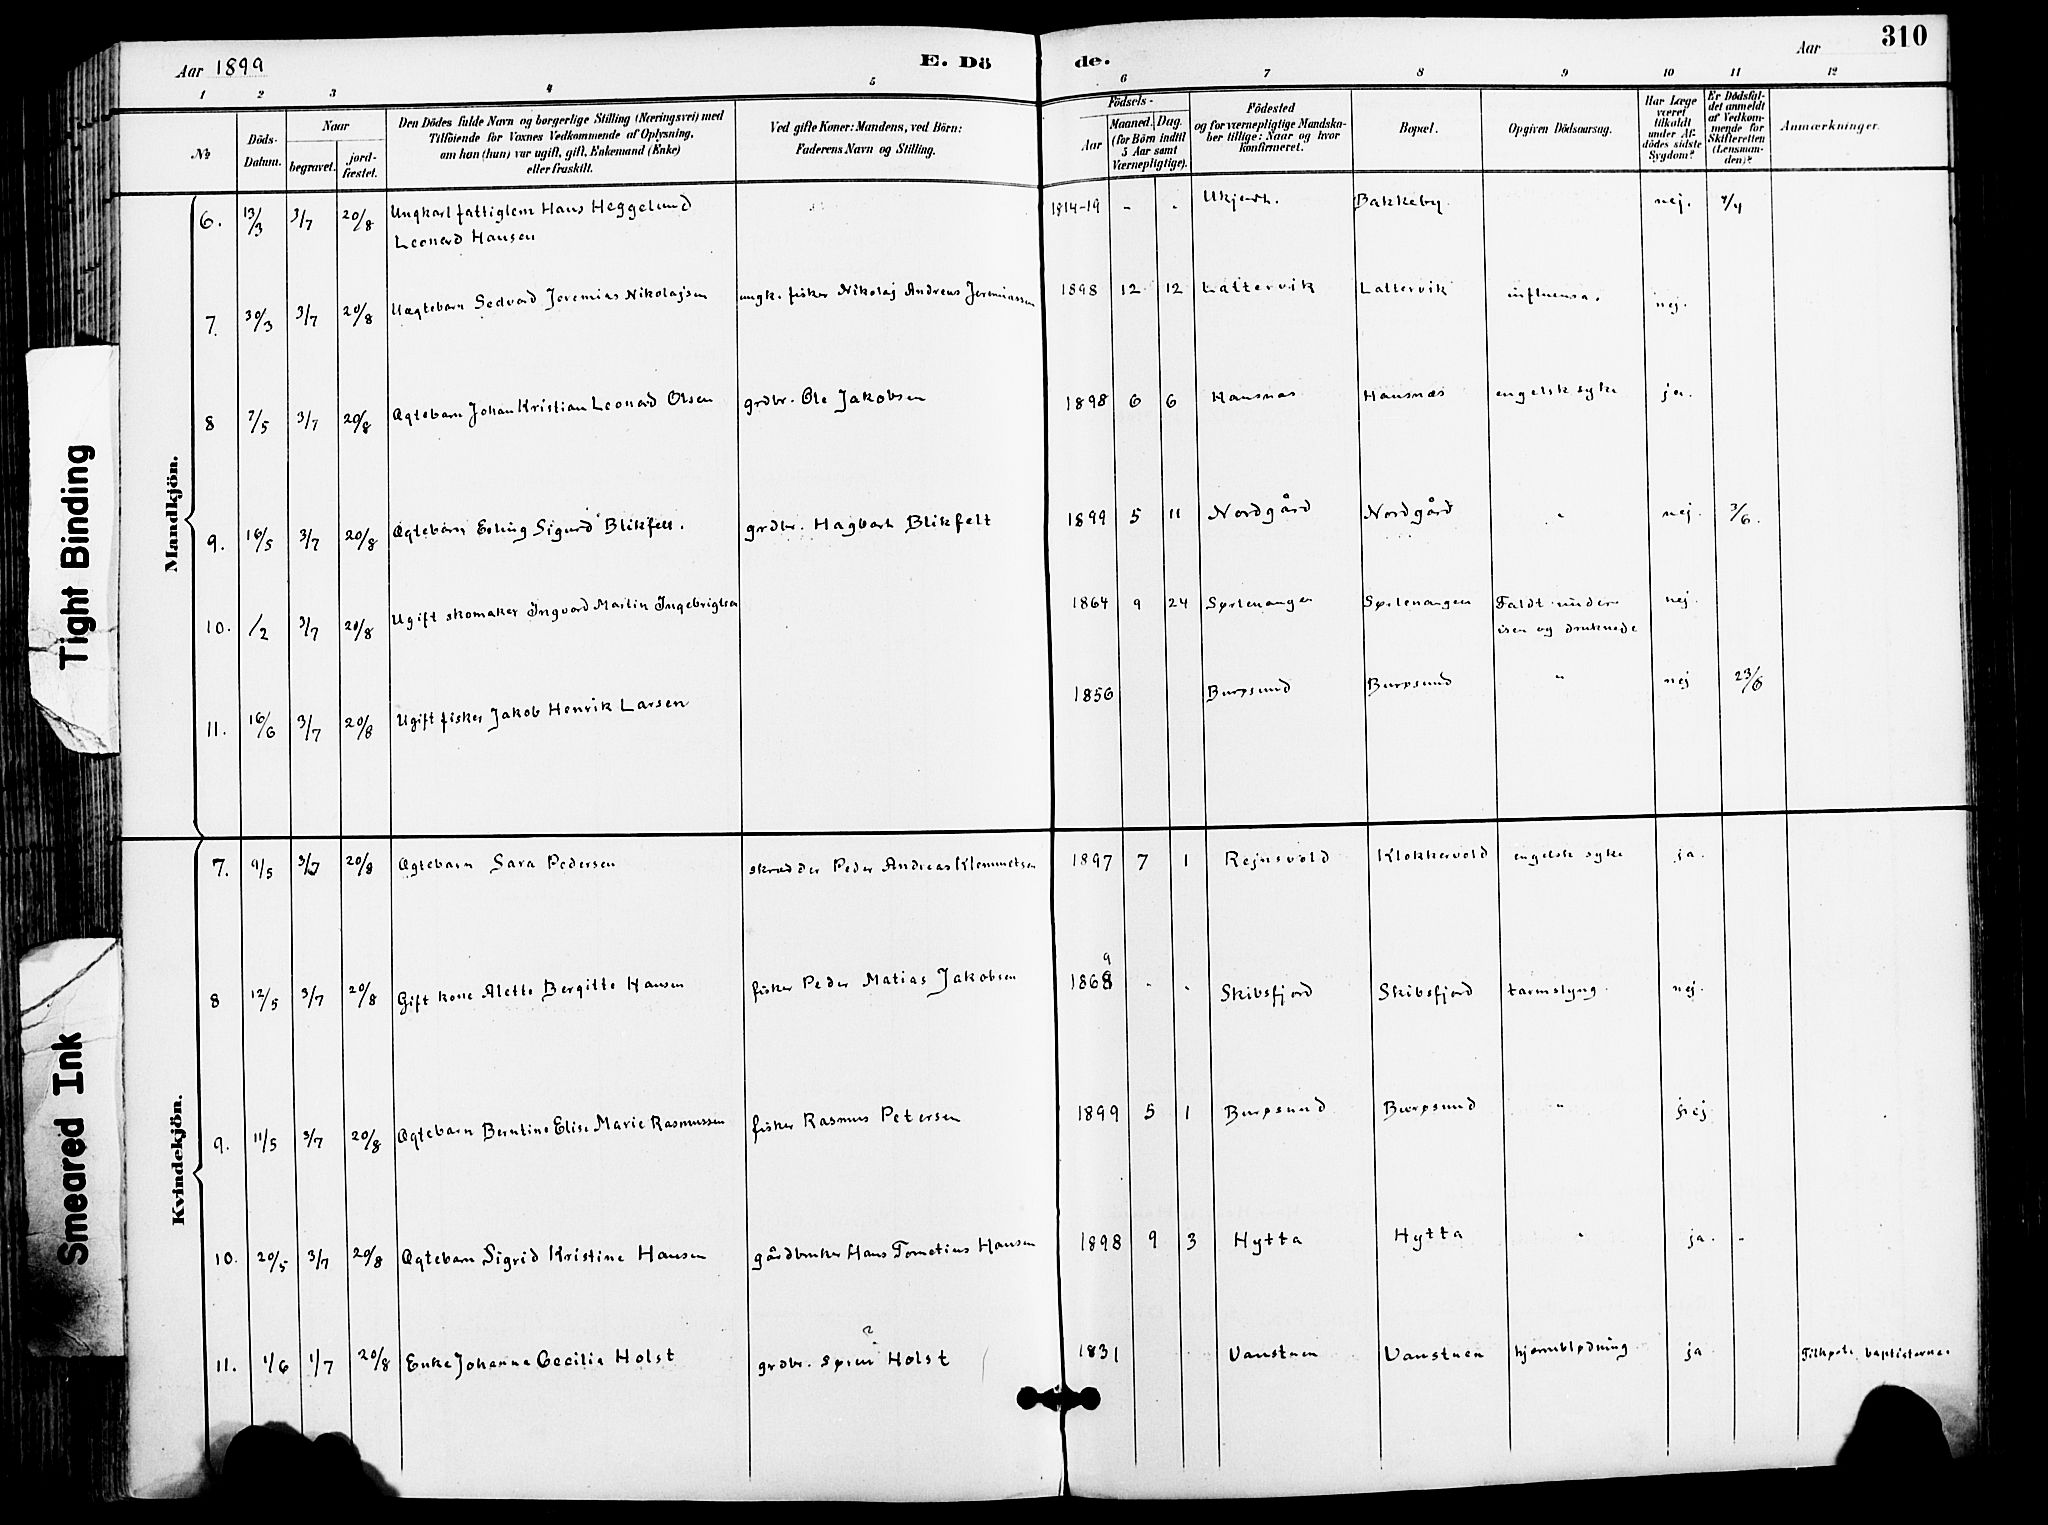 Aar 1899
E. Dö
de.
Aar
310
1 2 3 4 5 6 7 8 9 10 11 12
№
Döds-Datum.
Naar
begravet.
jord-fæstet.
Den Dödes fulde Navn og borgerlige Stilling (Næringsvei) med
Tilföiende for Voxnes Vedkommende af Oplysning,
om han (hun) var ugift, gift, Enkemand (Enke)
eller fraskilt.
Ved gifte Koner: Mandens, ved Börn:
Faderens Navn og Stilling.
Födsels-
Aar
Maaned. Dag.
(for Börn indtil
5 Aar samt
Værnepligtige).
Födested
og for værnepligtige Mandska-
ber tillige: Naar og hvor
konfirmeret.
Bopæl.
Opgiven Dödsaarsag.
Har Læge
været
tilkaldt
under Af-
dödes sidste
Sygdom?
Er Dödsfal-
det anmeldt
af Vedkom-
mende for
Skifteretten
(Lensman-
den)?
Anmærkninger.
Mandkjön.
6. 13/3 3/7 20/8 Ungkarl fattiglem Hans Heggelund 1814-19 - - Ukjendt. Bakkeby. nej. 4/4
Leonard Hansen
7. 30/3 3/7 20/8 Uægtebarn Sedvard Jeremias Nikolajsen ungk. fisker Nikolaj Andreas Jeremiassen 1898 12 12 Lattervik Lattervik influensa. nej.
8 7/5 3/7 20/8 Ægtebarn Johan Kristian Leonard Olsen grdbr. Ole Jakobsen 1898 6 6 Hansnæs Hansnæs engelsk syke ja.
9. 16/5 3/7 20/8 Ægtebarn Erling Sigurd Blikfelt. grdbr. Hagbart Blikfelt 1899 5 11 Nordgård Nordgård " nej. 3/6.
10. /2 3/7 20/8 Ugift skomaker Ingvard Martin Ingebrigtsen 1864 9 24 Sørlenangen Sørlenangen Faldt under nej.
isen og druknede
11. 16/6 3/7 20/8 Ugift fisker Jakob Henrik Larsen 1856 Burøsund Burøsund " nej 23/6
Kvindekjön.
7. 9/5 3/7 20/8 Ægtebarn Sara Pedersen skrædder Peder Andreas Klemmetsen 1897 7 1 Rejnsvold Klokkervold engelsk syke ja.
8 12/5 3/7 20/8 Gift kone Alette Bergitte Hansen fisker Peder Matias Jakobsen 1868 9 - - Skibsfjord Skibsfjord tarmslyng. nej.
9. 11/5 3/7 20/8 Ægtebarn Berntine Elise Marie Rasmussen fisker Rasmus Petersen 1899 5 1 Burøsund Burøsund " nej
10. 20/5 3/7 20/8 Ægtebarn Sigrid Kristine Hansen gårdbruker Hans Tometius Hansen 1898 9 3 Hytta Hytta " ja. -
11. 1/6 1/7 20/8 Enke Johanna Cecilia Holst grdbr. Søren ? Holst 1831 Vanstuen Vanstuen hjerneblødning ja Tilhørte baptisterne
Tight Binding
Smeared Ink